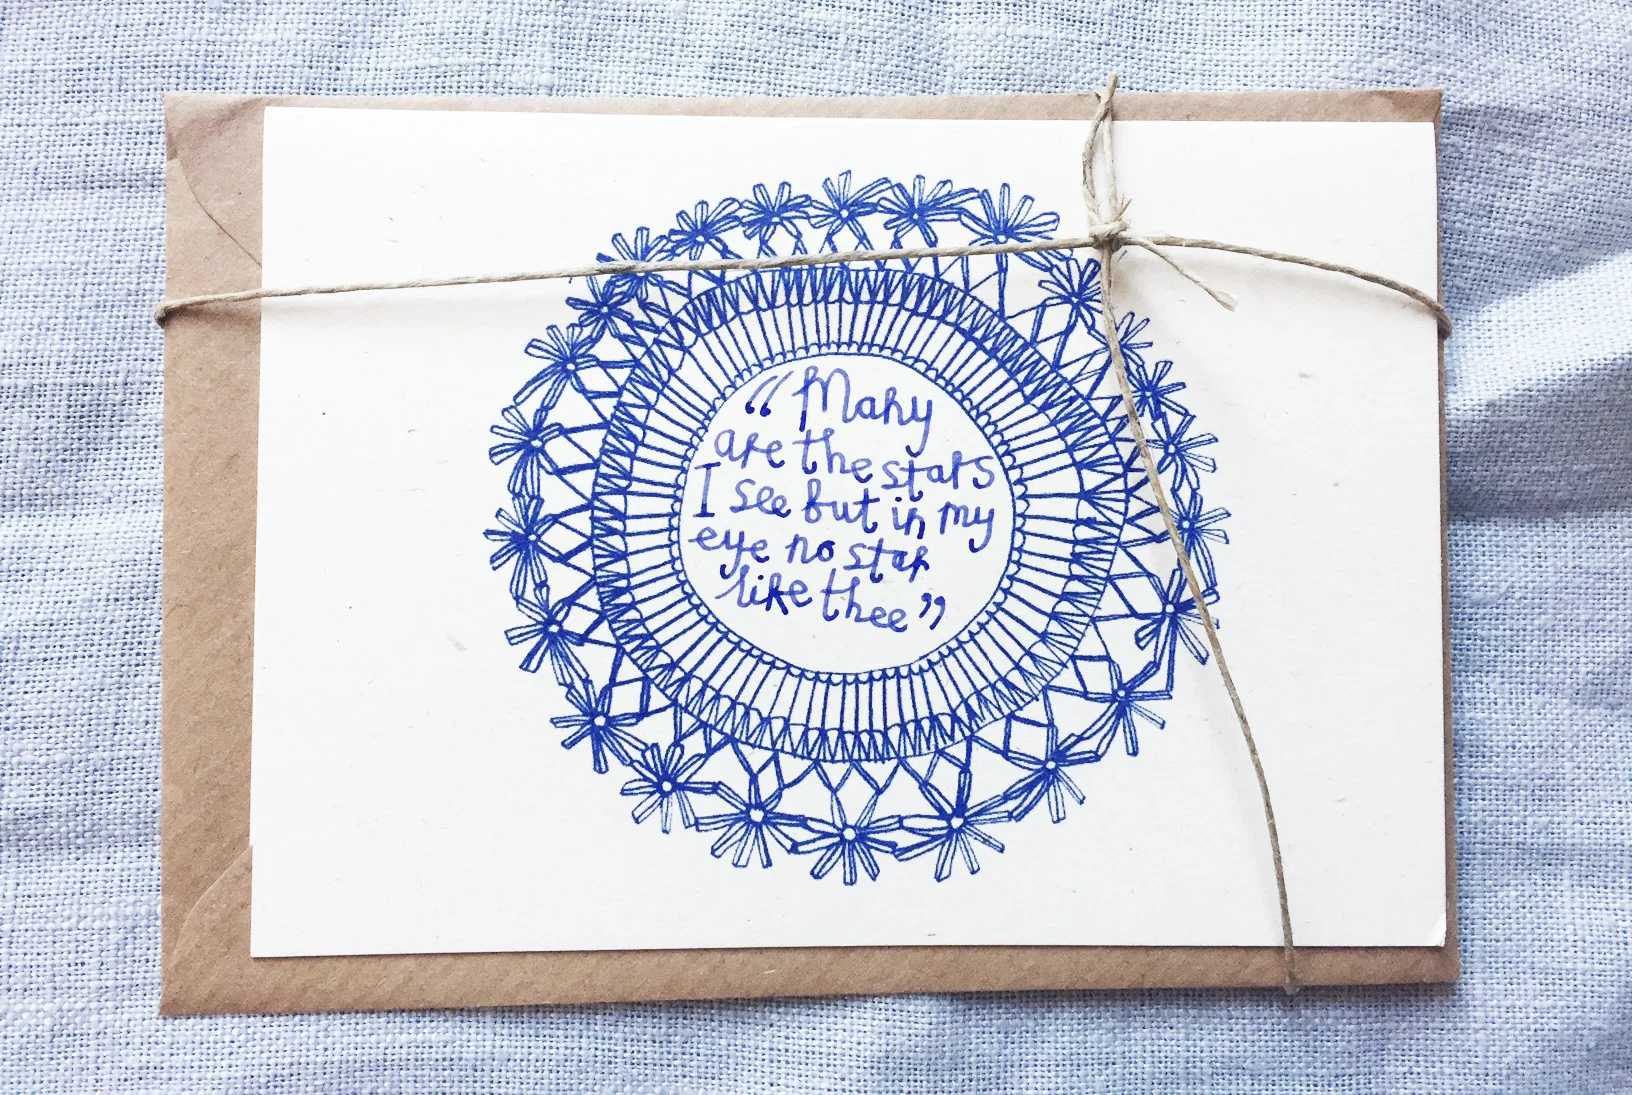 “Many
are the stars
I see but in my
eye no star
like thee”